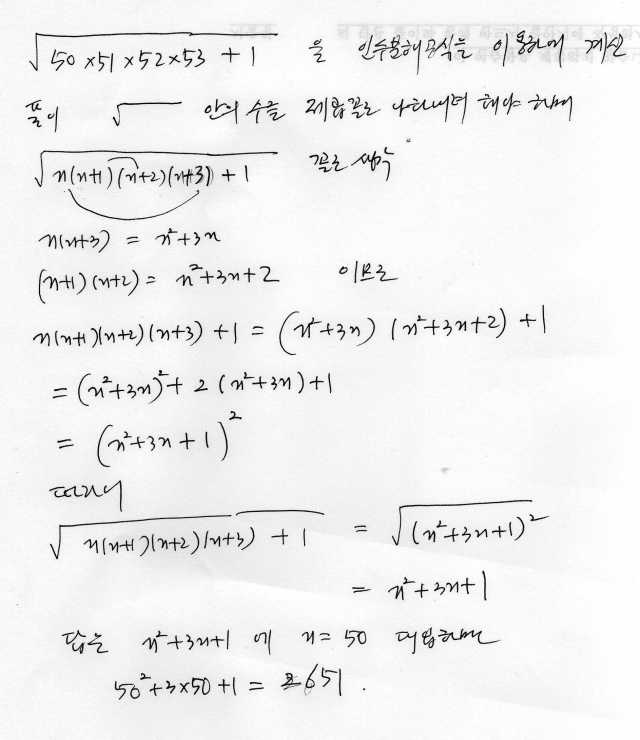 √(50×51×52×53 + 1) 을 인수분해공식을 이용하여 계산
풀이 √ 안의 수를 제곱꼴로 나타내려 해야 하며
√(n(n+1)(n+2)(n+3) + 1) 꼴로 생각
n(n+3) = n²+3n
(n+1)(n+2) = n²+3n+2 이므로
n(n+1)(n+2)(n+3) +1 = (n²+3n)(n²+3n+2) +1
= (n²+3n)²+ 2(n²+3n)+1
= (n²+3n+1)²
따라서
√(n(n+1)(n+2)(n+3) + 1) = √((n²+3n+1)²)
= n²+3n+1
답은 n²+3n+1 에 n=50 대입하면
50²+3×50+1 = 2651.